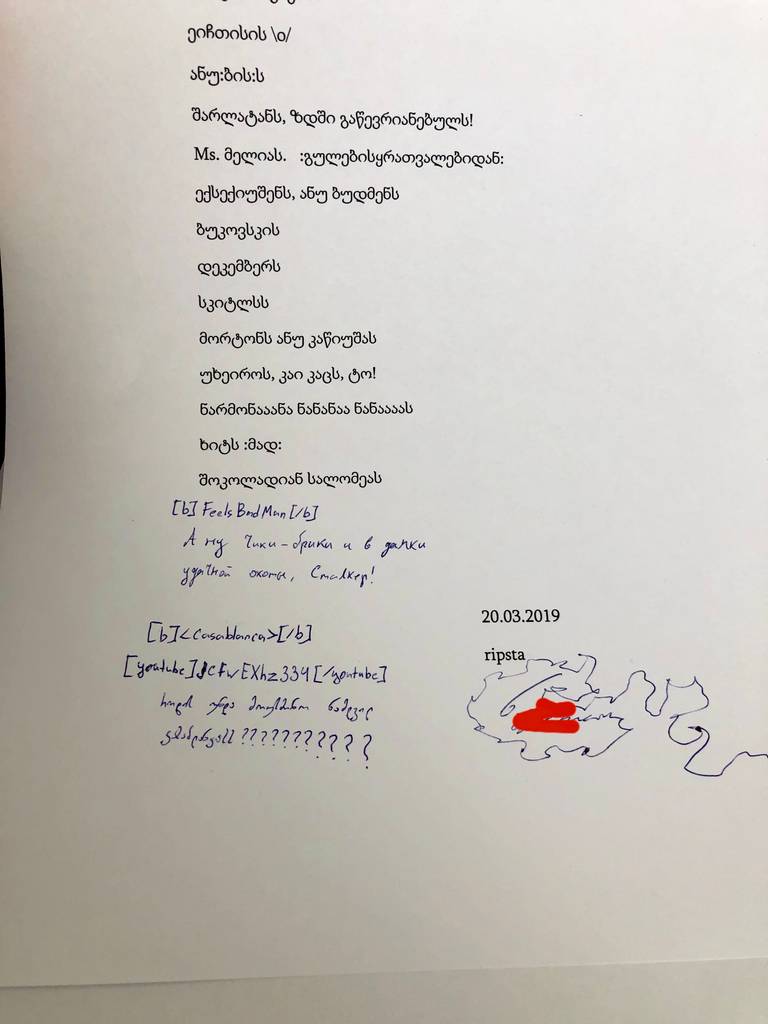 ეიჩთისის \o/
ანუ:ბის:ს
შარლატანს, ზდში გაწევრიანებულს!
Ms. მელიას. :გულებისყრათვალებიდან:
ექსექიუშენს, ანუ ბუდმენს
ბუკოვსკის
დეკემბერს
სკიტლსს
მორტონს ანუ კაწიუშას
უხეიროს, კაი კაცს, ტო!
ნარმონააანა ნანანაა ნანაააას
ხიტს :მად:
შოკოლადიან სალომეას
[b] FeelsBadMan [/b]
А ну чики-брики и в дамки
удачной охоты, Сталкер!
20.03.2019
[b]<Casablanca>[/b]
ripsta
[youtube] CfwEXhz334 [/youtube]
??????????